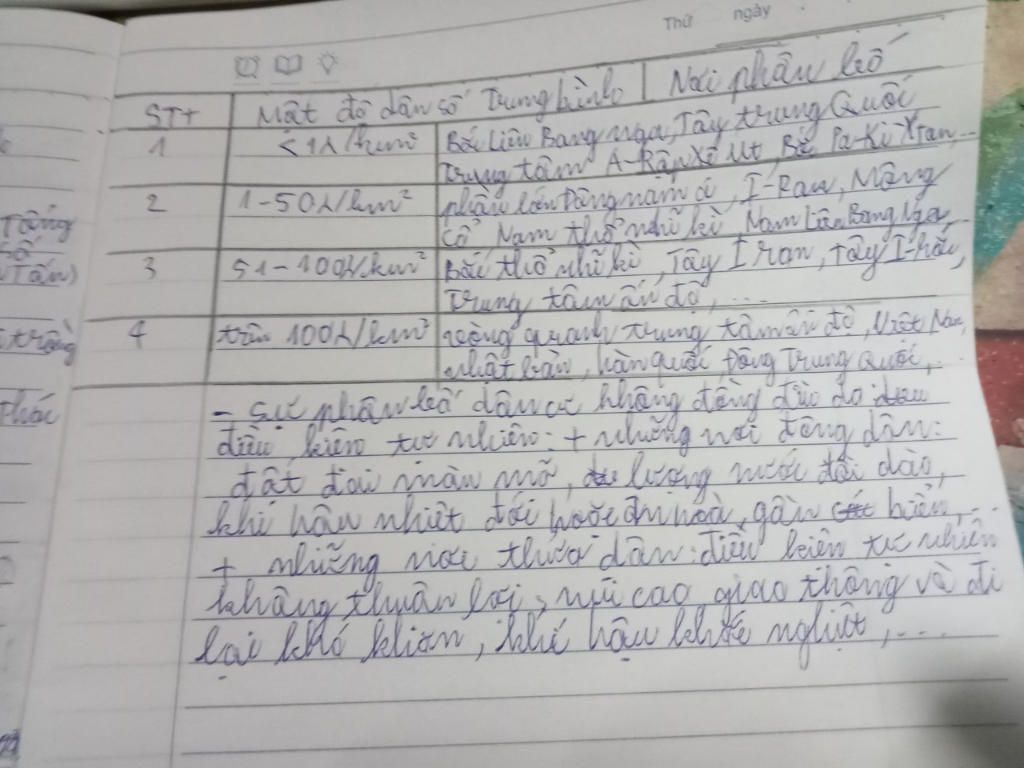 Thứ ngày
STT Mật độ dân số trung bình Nơi phân bố
1 <1λ/km² Bắc Liên Bang nga, Tây trung Quốc
trung tâm A-Rập Xê Út, Bắc Pa-Ki-Xtan,...
2 1-50λ/km² phần lớn Đông nam á, I-Ran, Mông
Cổ, Nam thổ nhĩ kì, Nam Liên Bang Nga...
3 51-100λ/km² Bắc thổ nhĩ kì, Tây I ran, Tây I-rắc,
Trung tâm ấn độ, ...
4 trên 100λ/km² vòng quanh trung tâm ấn độ, Việt Nam,
nhật bản, hàn quốc, Đông Trung Quốc,...
- Sự phân bố dân cư không đồng đều do
điều kiện tự nhiên: + những nơi đông dân:
đất đai màu mỡ, lượng nước dồi dào,
khí hậu nhiệt đới hoặc ôn hoà, gần biển,...
+ những nơi thưa dân: điều kiện tự nhiên
không thuận lợi, núi cao giao thông và đi
lại khó khăn, khí hậu khắc nghiệt,...
Tổng
số
Tấn)
trồng
thác